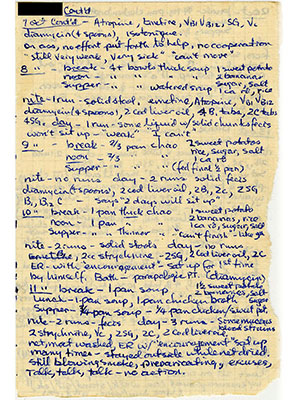 Cont'd
7 oct Cont'd - Atropine, Emetine, VB1 VB12, SG, Vc
diamycin (4 spoons), isotonique.
on ass, no effort put forth to help, no cooperation
still very weak, very sick "can't move"
8 " - break - 4+ bowls thick soup 1 sweet potato
noon - " " 2 bananas
Supper - " " watered soup sugar, salt 1 ca rô, rice
nite - 1 run - solid stool, emetine, Atropine, VB1 VB12
diamycin (4 spoons), 2cc liver oil, 4 B, tabs, 2C tabs
4SG, day - 1 run - some liquid w/ solid chunks feces
won't sit up - "weak" "I can't"
9 " - break - 2/3 pan chao 2 sweet potatoes
noon - 2/3 " " rice, sugar, salt
Supper - " " (fed final ½ pan) 1 ca rô
nite - no runs day - 2 runs solid feces
diamycin (4 spoons), 2cc liver oil, 2B, 2C, 2SG
B1, B12, C says "2 days will sit up"
10 " - break - 1 pan thick chao 1 sweet potato
noon - 1 pan " " 2 bananas, rice
Supper - " " Thinner " 1 ca rô, sugar, salt
nite - 2 runs - solid stools day - no runs
2cc strychnine - 2SG, 2cc liver oil, 2C
ER - with "encouragement" set up for 1st time
by himself. Bath. (diamycin)
11 " - break - 1 pan soup, 1½ sweet potato
Lunch - 1 pan soup, 1 pan chicken broth 2 bananas, salt sugar
Supper - ¼ pan soup - ¼ pan chicken/sweet pot
nite - 2 runs - feces day - 3 runs - some mucous
2 strychnine, Vc, 2SG, 2cc cod liver oil blood strains
net, mat washed, ER w/ "encouragement" sat up
many times - stayed outside while net dried.
still blowing smoke, prevaricating, excuses,
Talk, talk, talk - no action.